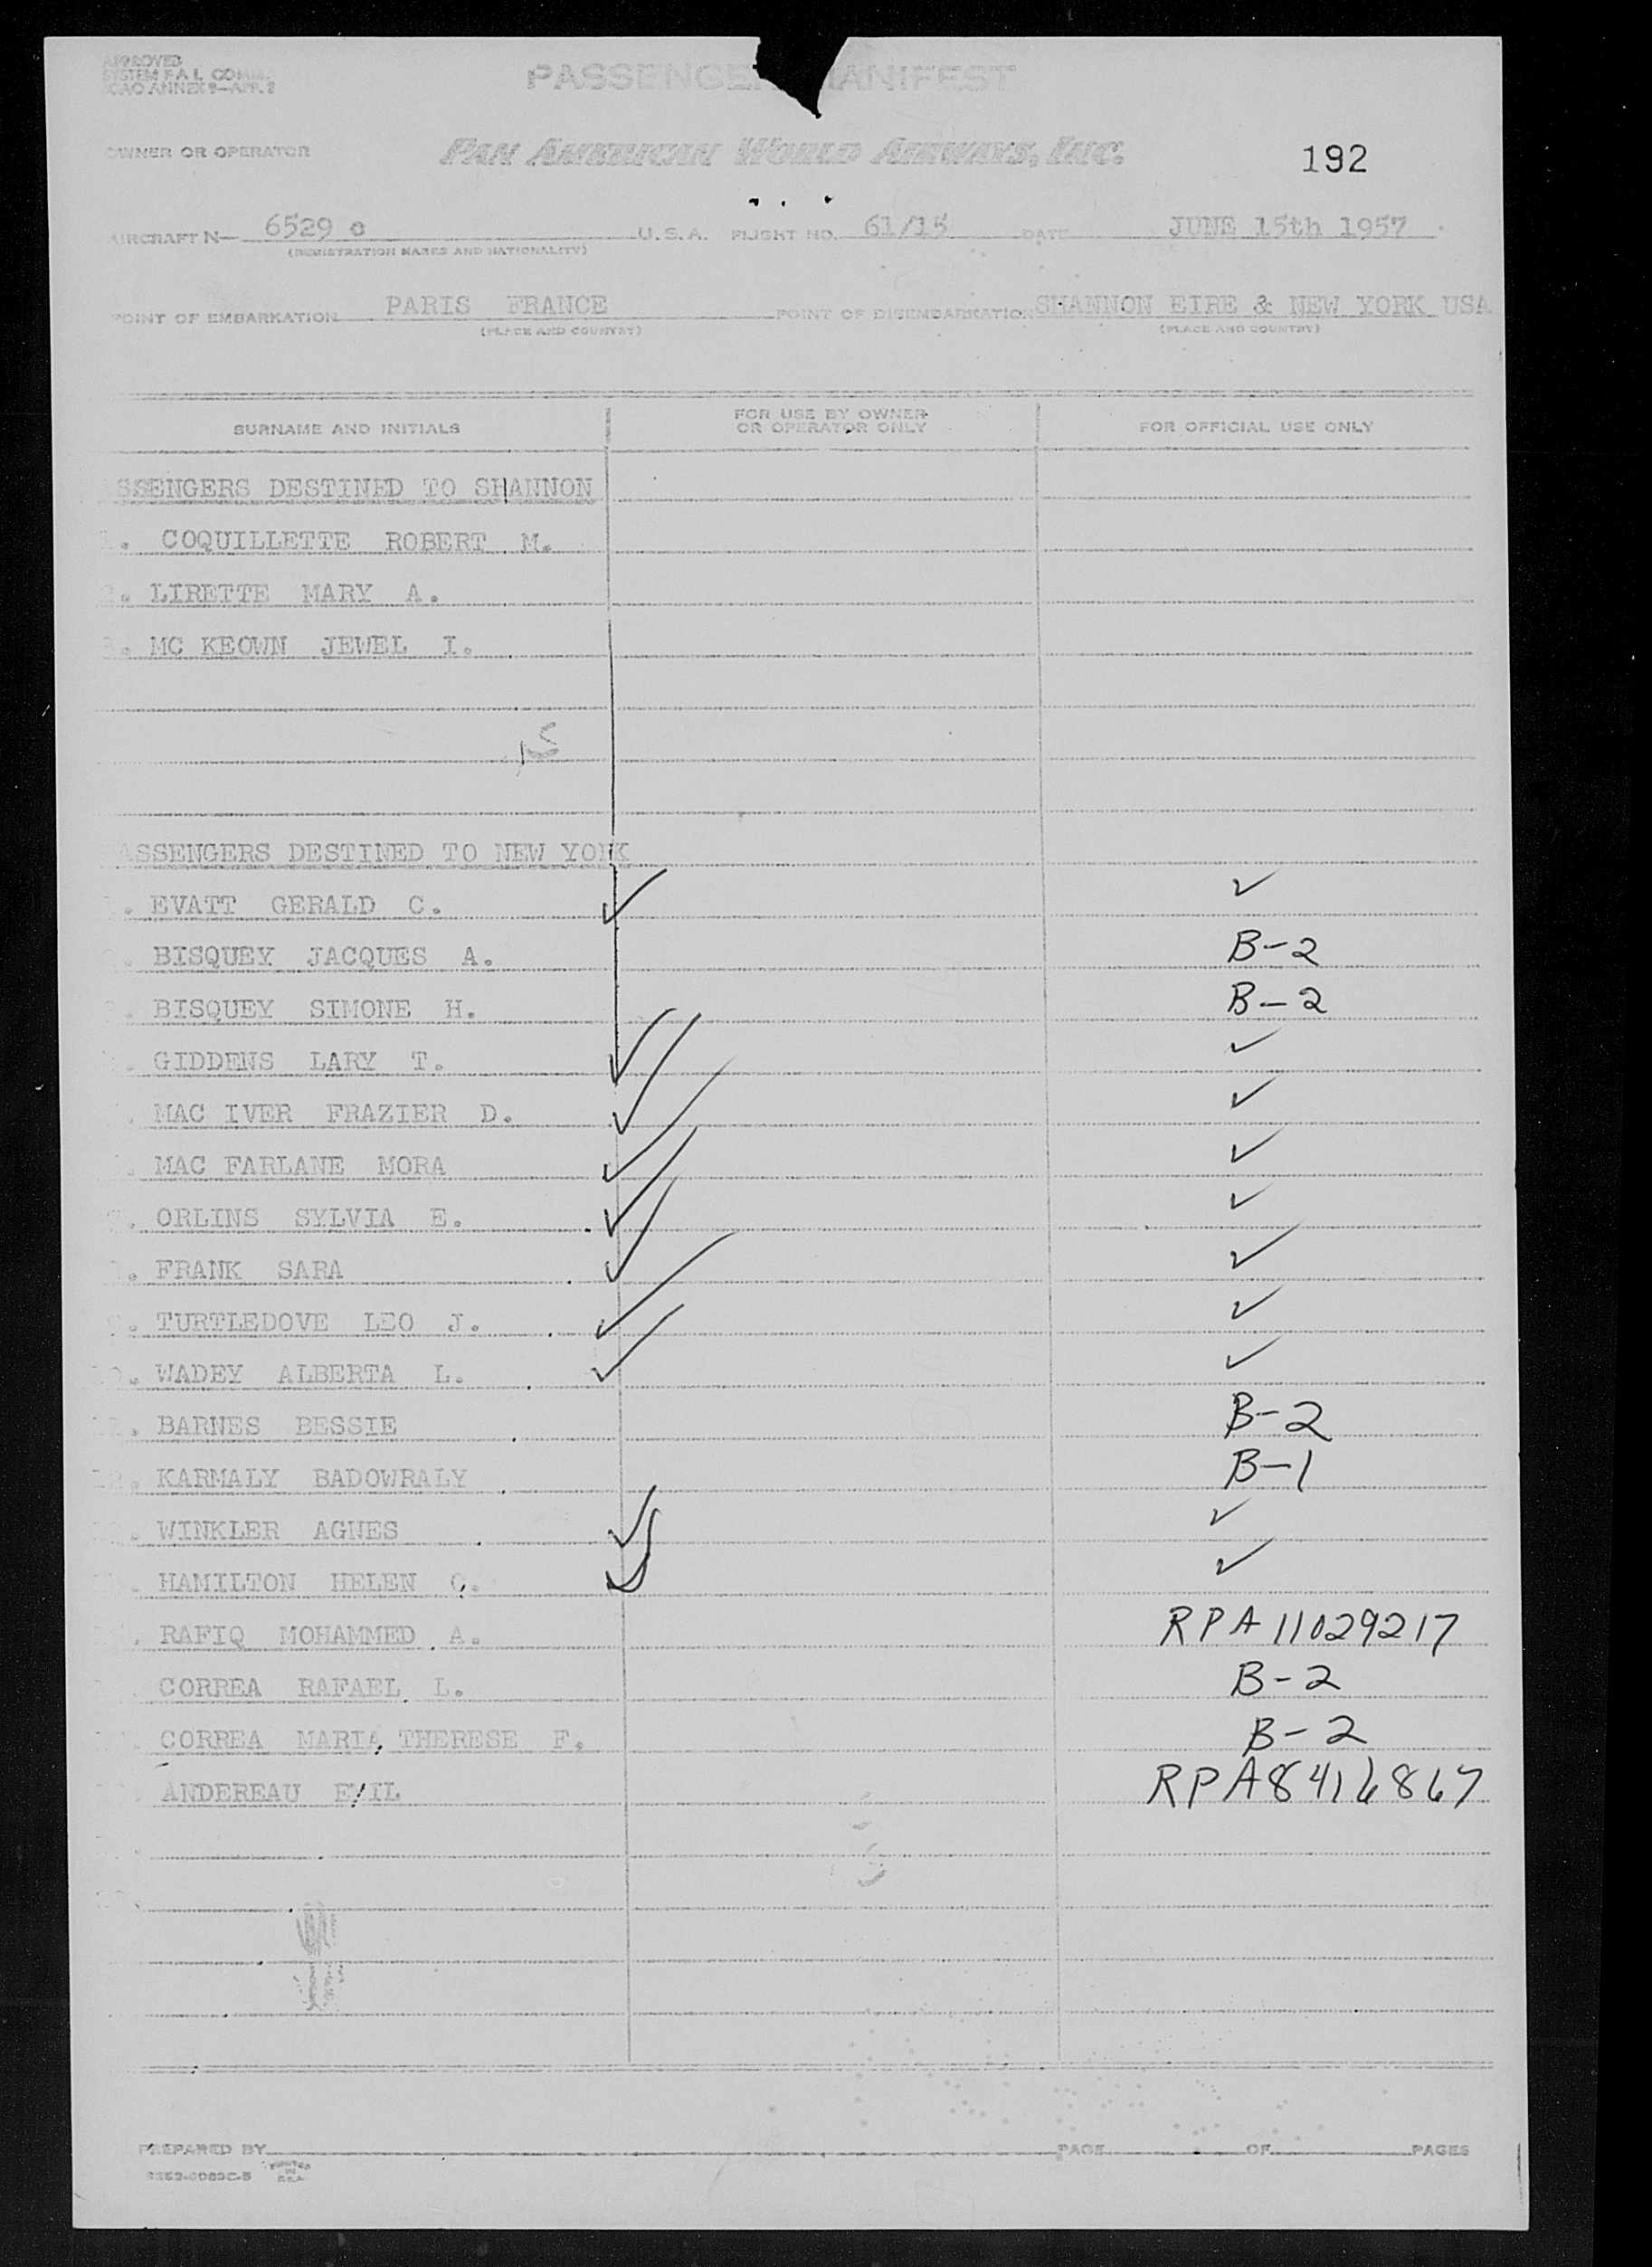 APPROVED
SYSTEM F.A.L. COMM.
ICAO ANNEX 9—APP. 2
PASSENGER MANIFEST
OWNER OR OPERATOR PAN AMERICAN WORLD AIRWAYS, INC. 192
AIRCRAFT N— 6529 c U.S.A. FLIGHT NO. 61/15 DATE JUNE 15th 1957
(REGISTRATION MARKS AND NATIONALITY)
POINT OF EMBARKATION PARIS FRANCE POINT OF DISEMBARKATION SHANNON EIRE & NEW YORK USA
(PLACE AND COUNTRY) (PLACE AND COUNTRY)
SURNAME AND INITIALS FOR USE BY OWNER OR OPERATOR ONLY FOR OFFICIAL USE ONLY
SSENGERS DESTINED TO SHANNON
1. COQUILLETTE ROBERT M.
2. LIRETTE MARY A.
3. MC KEOWN JEWEL I.
ASSENGERS DESTINED TO NEW YORK
. EVATT GERALD C. ✓ ✓
. BISQUEY JACQUES A. B-2
. BISQUEY SIMONE H. B-2
. GIDDENS LARY T. ✓ ✓
. MAC IVER FRAZIER D. ✓ ✓
. MAC FARLANE MORA ✓ ✓
. ORLINS SYLVIA E. ✓ ✓
. FRANK SARA ✓ ✓
. TURTLEDOVE LEO J. ✓ ✓
. WADEY ALBERTA L. ✓ ✓
. BARNES BESSIE B-2
. KARMALY BADOWRALY B-1
. WINKLER AGNES ✓ ✓
. HAMILTON HELEN C. ✓ ✓
. RAFIQ MOHAMMED A. RPA 11029217
CORREA RAFAEL L. B-2
CORREA MARIA THERESE F. B-2
ANDEREAU EMIL RPA 8416867
PREPARED BY PAGE OF PAGES